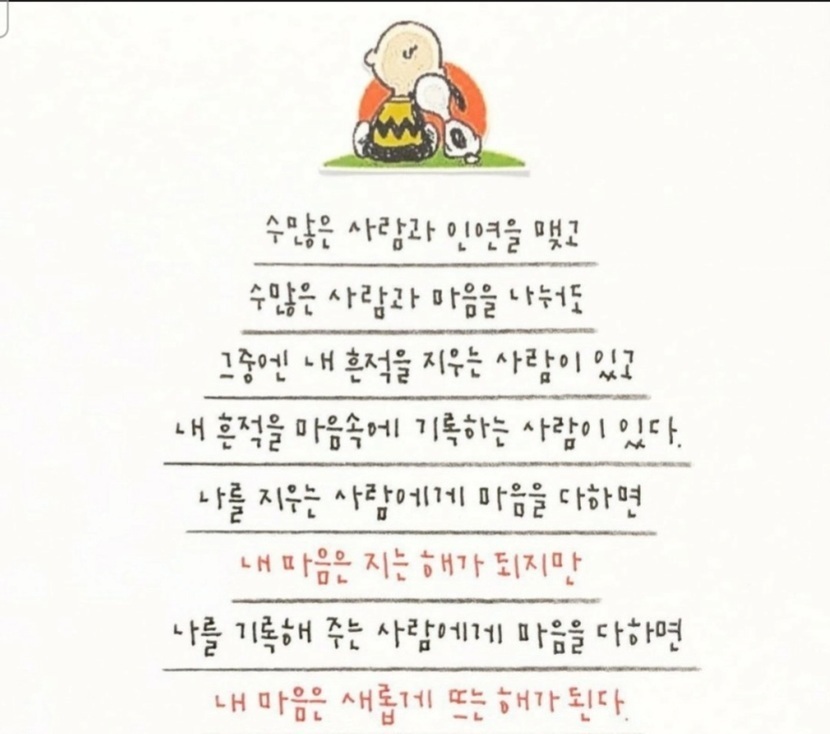 수많은 사람과 인연을 맺고
수많은 사람과 마음을 나눠도
그중엔 내 흔적을 지우는 사람이 있고
내 흔적을 마음속에 기록하는 사람이 있다.
나를 지우는 사람에게 마음을 다하면
내 마음은 지는 해가 되지만
나를 기록해 주는 사람에게 마음을 다하면
내 마음은 새롭게 뜨는 해가 된다.